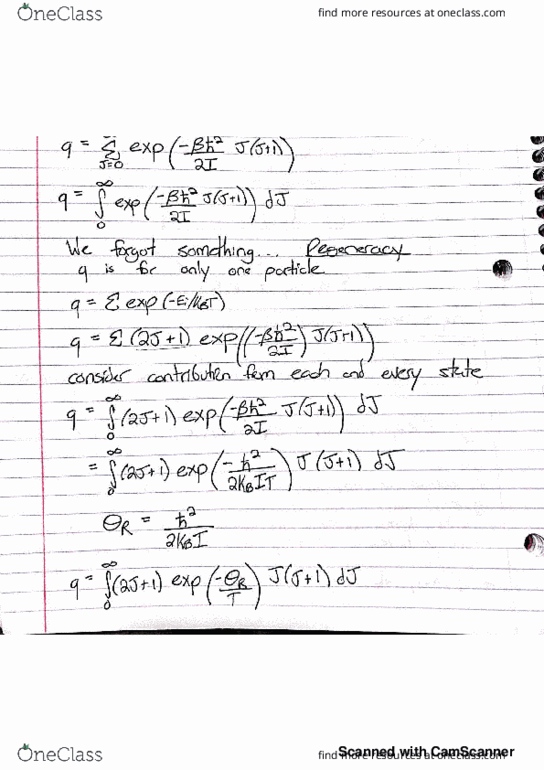 OneClass
find more resources at oneclass.com
q = Σ J=0 exp(-βħ²/2I J(J+1))
q = ∫₀^∞ exp(-βħ²/2I J(J+1)) dJ
We forgot something... Degeneracy
q is for only one particle
q = Σ exp(-Ei/kBT)
q = Σ (2J+1) exp((-βħ²/2I) J(J+1))
consider contribution from each and every state
q = ∫₀^∞ (2J+1) exp(-βħ²/2I J(J+1)) dJ
= ∫₀^∞ (2J+1) exp(-ħ²/2kBIT) J(J+1) dJ
ΘR = ħ²/2kBI
q = ∫₀^∞ (2J+1) exp(-ΘR/T) J(J+1) dJ
Scanned with CamScanner
OneClass
find more resources at oneclass.com